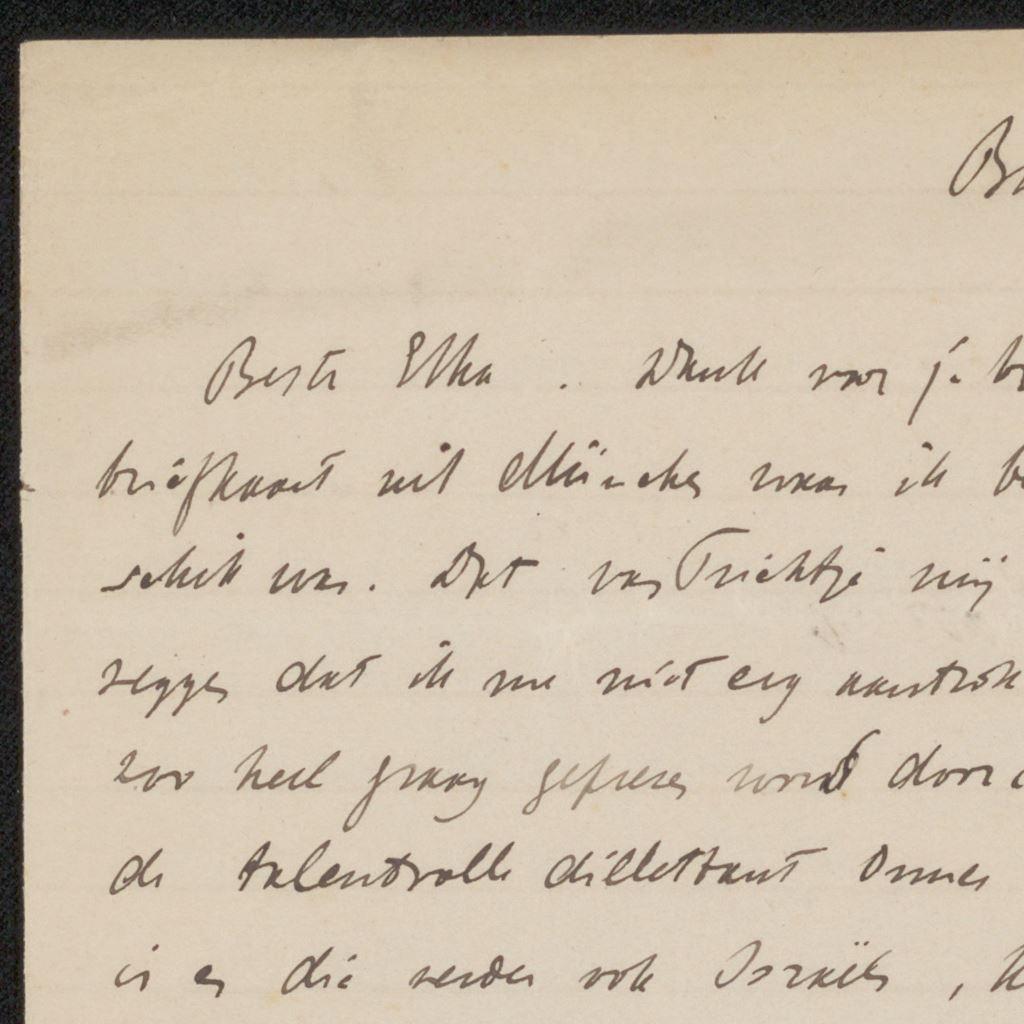 B
Beste Etha. Dank voor je
briefkaart uit München waar ik
schik was. Dat van Trichtje mij
zeggen dat ik me niet erg aantrok
zoo heel graag geprezen word door
de talentvolle dillettant Onnes
is en die verder ook Israëls,